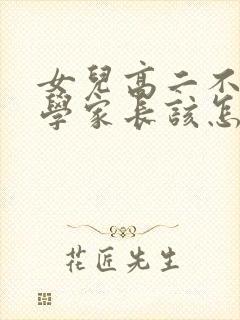 女兒高二不
學家長該怎
花匠先生